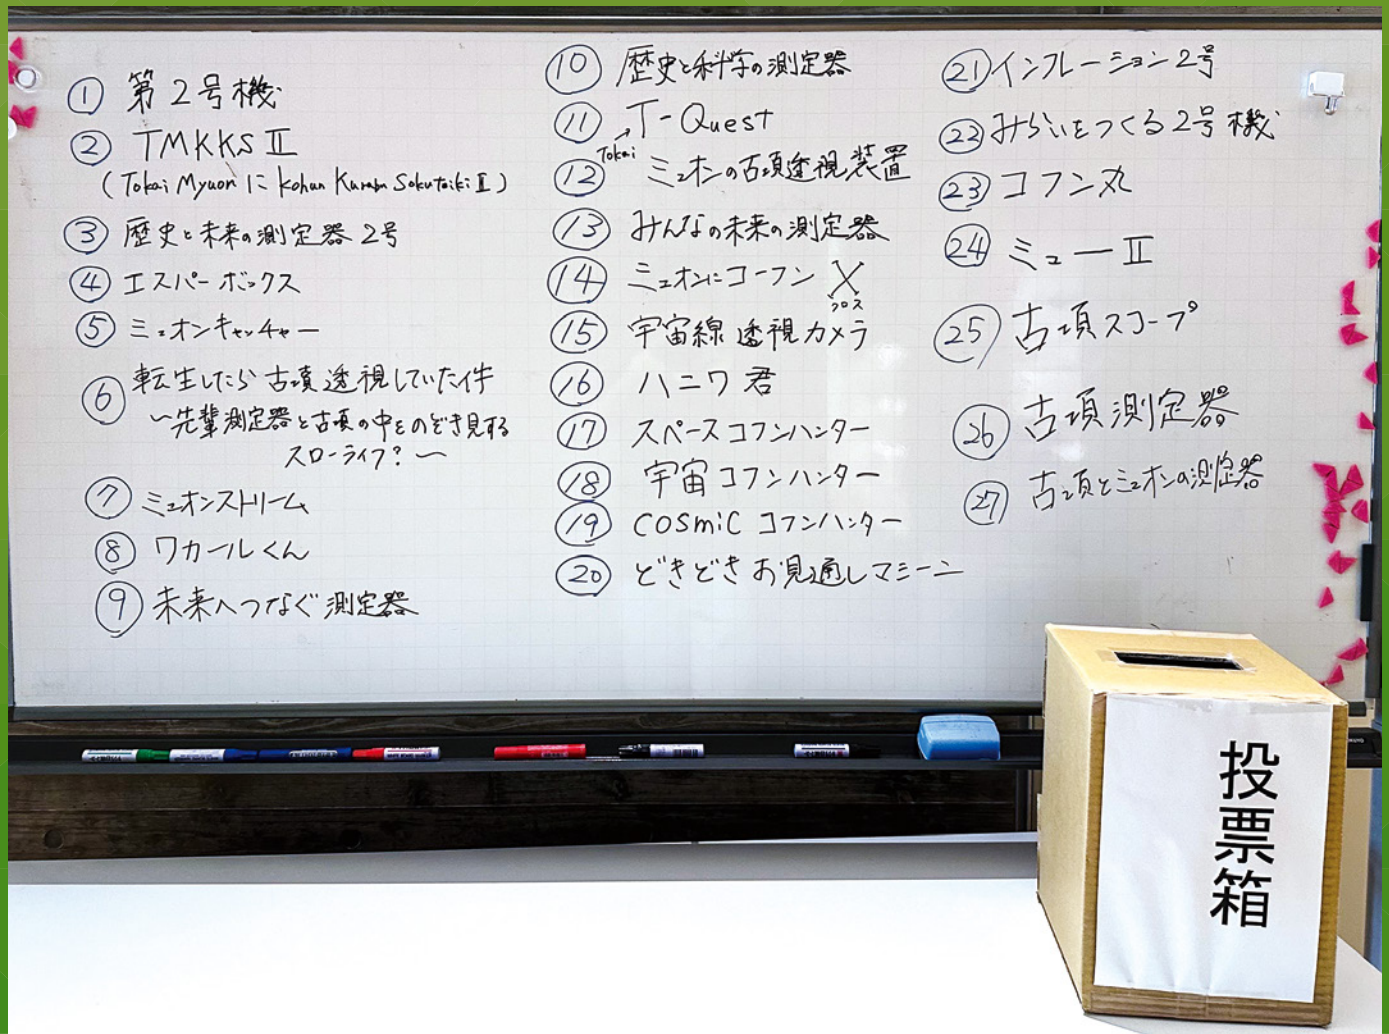 ① 第2号機
② TMKKSⅡ
(Tokai Myuon に kohun Kurabu Sokuteiki Ⅱ)
③ 歴史と未来の測定器2号
④ エスパーボックス
⑤ ミュオンキャッチャー
⑥ 転生したら古墳透視していた件
〜先輩測定器と古墳の中をのぞき見する
スローライフ?〜
⑦ ミュオンストリーム
⑧ ワカールくん
⑨ 未来へつなぐ測定器
⑩ 歴史と科学の測定器
⑪ T-Quest
Tokai
⑫ ミュオンの古墳透視装置
⑬ みんなの未来の測定器
⑭ ミュオンにコーフン X
クロス
⑮ 宇宙線透視カメラ
⑯ ハニワ君
⑰ スペースコフンハンター
⑱ 宇宙コフンハンター
⑲ cosmic コフンハンター
⑳ どきどきお見通しマシーン
㉑ インフレーション2号
㉒ みらいをつくる2号機
㉓ コフン丸
㉔ ミューⅡ
㉕ 古墳スコープ
㉖ 古墳測定器
㉗ 古墳とミュオンの測定器
投票箱